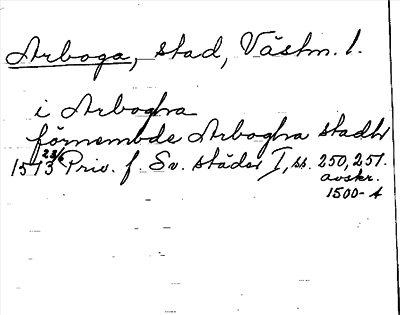 Arboga, stad, Västm. l.
i Arbogha
förnembde Arbogha stadh
1513 23/6 Priv. f. Sv. städer I, ss. 250, 251.
avskr.
1500-t